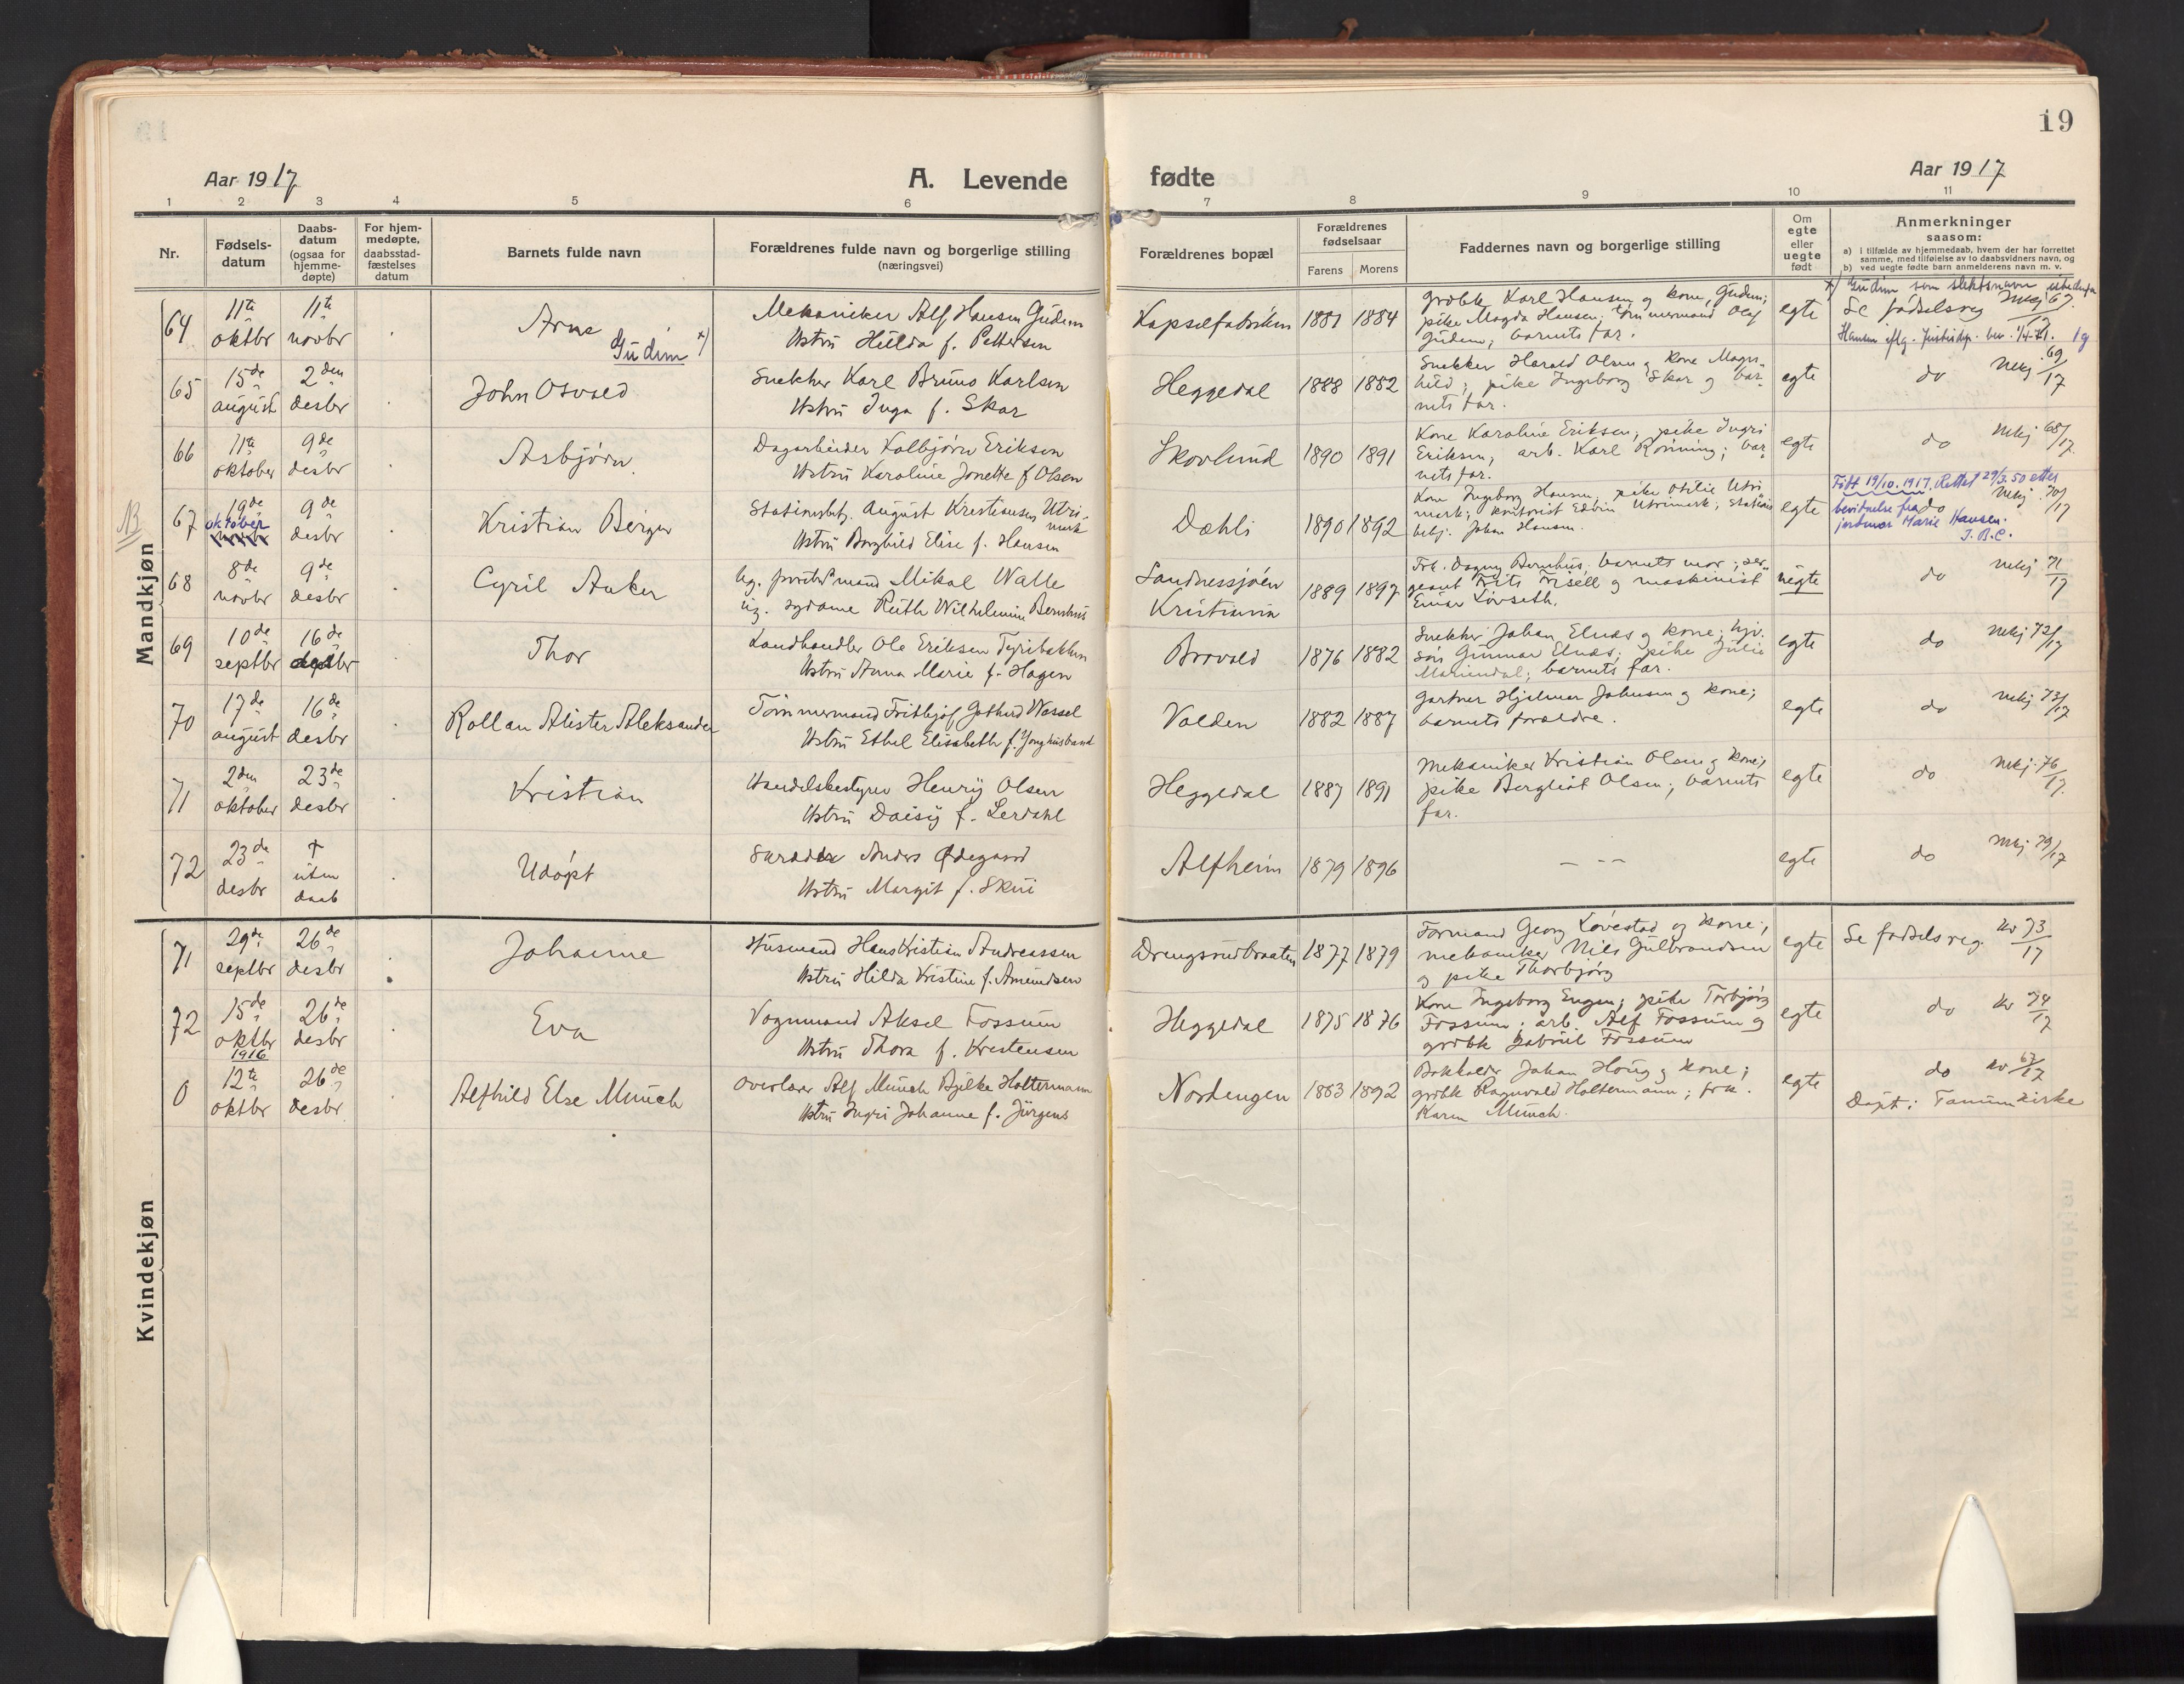 19
Aar 1917
A. Levende fødte
Aar 1917
1 2 3 4 5 6 7 8 9 10 11
Nr.
Fødsels-
datum
Daabs-
datum
(ogsaa for
hjemme-
døpte)
For hjem-
medøpte,
daabsstad-
fæstelses
datum
Barnets fulde navn
Forældrenes fulde navn og borgerlige stilling
(næringsvei)
Forældrenes bopæl
Forældrenes
fødselsaar
Farens Morens
Faddernes navn og borgerlige stilling
Om
egte
eller
uegte
født
Anmerkninger
saasom:
a) i tilfælde av hjemmedaab, hvem der har forrettet
samme, med tilføielse av to daabsvidners navn, og
b) ved uegte fødte barn anmelderens navn m. v.
Mandkjøn
64
11te
oktbr
11te
novbr
Arne
Gudim x)
Mekaniker Alf Hansen Gudem
Hstru Hulda f. Pettersen
Kapselfabriken
1881 1884
grdbk Karl Hansen og kone, Gudem;
pike Magda Hansen; tømmermand Olaf
Gudem; barnets far.
egte
x) Gudim som slektsnavn
Se fødselsreg
65
15de
august
2den
desbr
John Osvald
Snekker Karl Bruno Karlsen
Hstru Inga f. Skar
Heggedal
1888 1882
Snekker Harald Olsen og kone Magn-
hild; pike Ingeborg Skar og bar-
nets far.
egte
do mkj 69/17
66
11te
oktober
9de
desbr
Asbjørn
Dagarbeider Kolbjørn Eriksen
Hstru Karoline Jonette f Olsen
Skovlund
1890 1891
Kone Karoline Eriksen; pike Ingri
Eriksen; arb. Karl Rønning; bar-
nets far.
egte
do mkj 68/17
NB
67
19de
oktober
9de
desbr
Kristian Berger
Stationsbtj. August Kristiansen Utri-
mark
Hstru Borghild Elise f. Hansen
Dæhli
1890 1892
Kone Ingeborg Hansen, pike Otilie Utri
mark; kontorist Edvin Utrimark; stations
betj. Johan Hansen.
egte
Født 19/10.1917. Rettet 29/3.50 etter
bevidnelse fra do mkj 70/17
jordmor Marie Hansen.
68
8de
novbr
9de
desbr
Cyril Anker
ug. mand Mikal Walle
ug. sydame Ruth Wilhelmine Bernhus
Sandnessjøen
Kristiania
1889 1897
Frk. Dagny Bernhus, barnets mor; ser-
geant Frits Frisell og maskinist
Einar Løvseth.
uegte
do mkj 71/17
69
10de
septbr
16de
desbr
Thor
Landhandler Ole Eriksen Tyribakken
Hstru Anna Marie f. Hagen
Brovold
1876 1882
Snekker Johan Elnæs og kone; hjv.
søn Gunnar Elnæs; pike Julie
Mariendal; barnets far.
egte
do mkj 72/17
70
17de
august
16de
desbr
Rollan Alister Aleksander
Tømmermand Frithjof Gothard Wassel
Hstru Ethel Elisabeth f. Younghusband
Volden
1882 1887
Gartner Hjalmar Johnsen og kone;
barnets forældre.
egte
do mkj 73/17
71
2den
oktober
23de
desbr
Kristian
Handelsbestyrer Henry Olsen
Hstru Daisy f. Lerdahl
Heggedal
1887 1891
Mekaniker Kristian Olsen og kone;
pike Bergliot Olsen; barnets
far.
egte
do mkj 76/17
72
23de
desbr
†
uten
daab
Udøpt
Skrædder Anders Ødegaard
Hstru Margit f. Skui
Alfheim
1879 1896
— – –
egte
do mkj 79/17
Kvindekjøn
71
29de
septbr
26de
desbr
Johanne
Husmand Hans Kristian Andreassen
Hstru Hilda Kristine f. Amundsen
Drengsrudbraaten
1877 1879
Formand Georg Løvestad og kone;
mekaniker Nils Gulbrandsen
og pike Thorbjørg
egte
Se fødselsreg. kv 73/17
72
15de
oktbr
26de
desbr
Eva
Vognmand Aksel Fossum
Hstru Thora f. Kristensen
Heggedal
1875 1876
Kone Ingeborg Engen; pike Torbjørg
Fossum; arb. Alf Fossum og
grdbk Gabriel Fossum
egte
do kv 74/17
0
1916
12te
oktbr
26de
desbr
Alfhild Else Munch
Overlærer Alf Munch Bjelke Holtermann
Hstru Ingri Johanne f. Jürgens
Nordengen
1883 1892
Bokholder Johan Houg og kone;
grdbk Ragnvald Holtermann; frk.
Karen Munch.
egte
do kv 67/17
Døpt i Tanum kirke